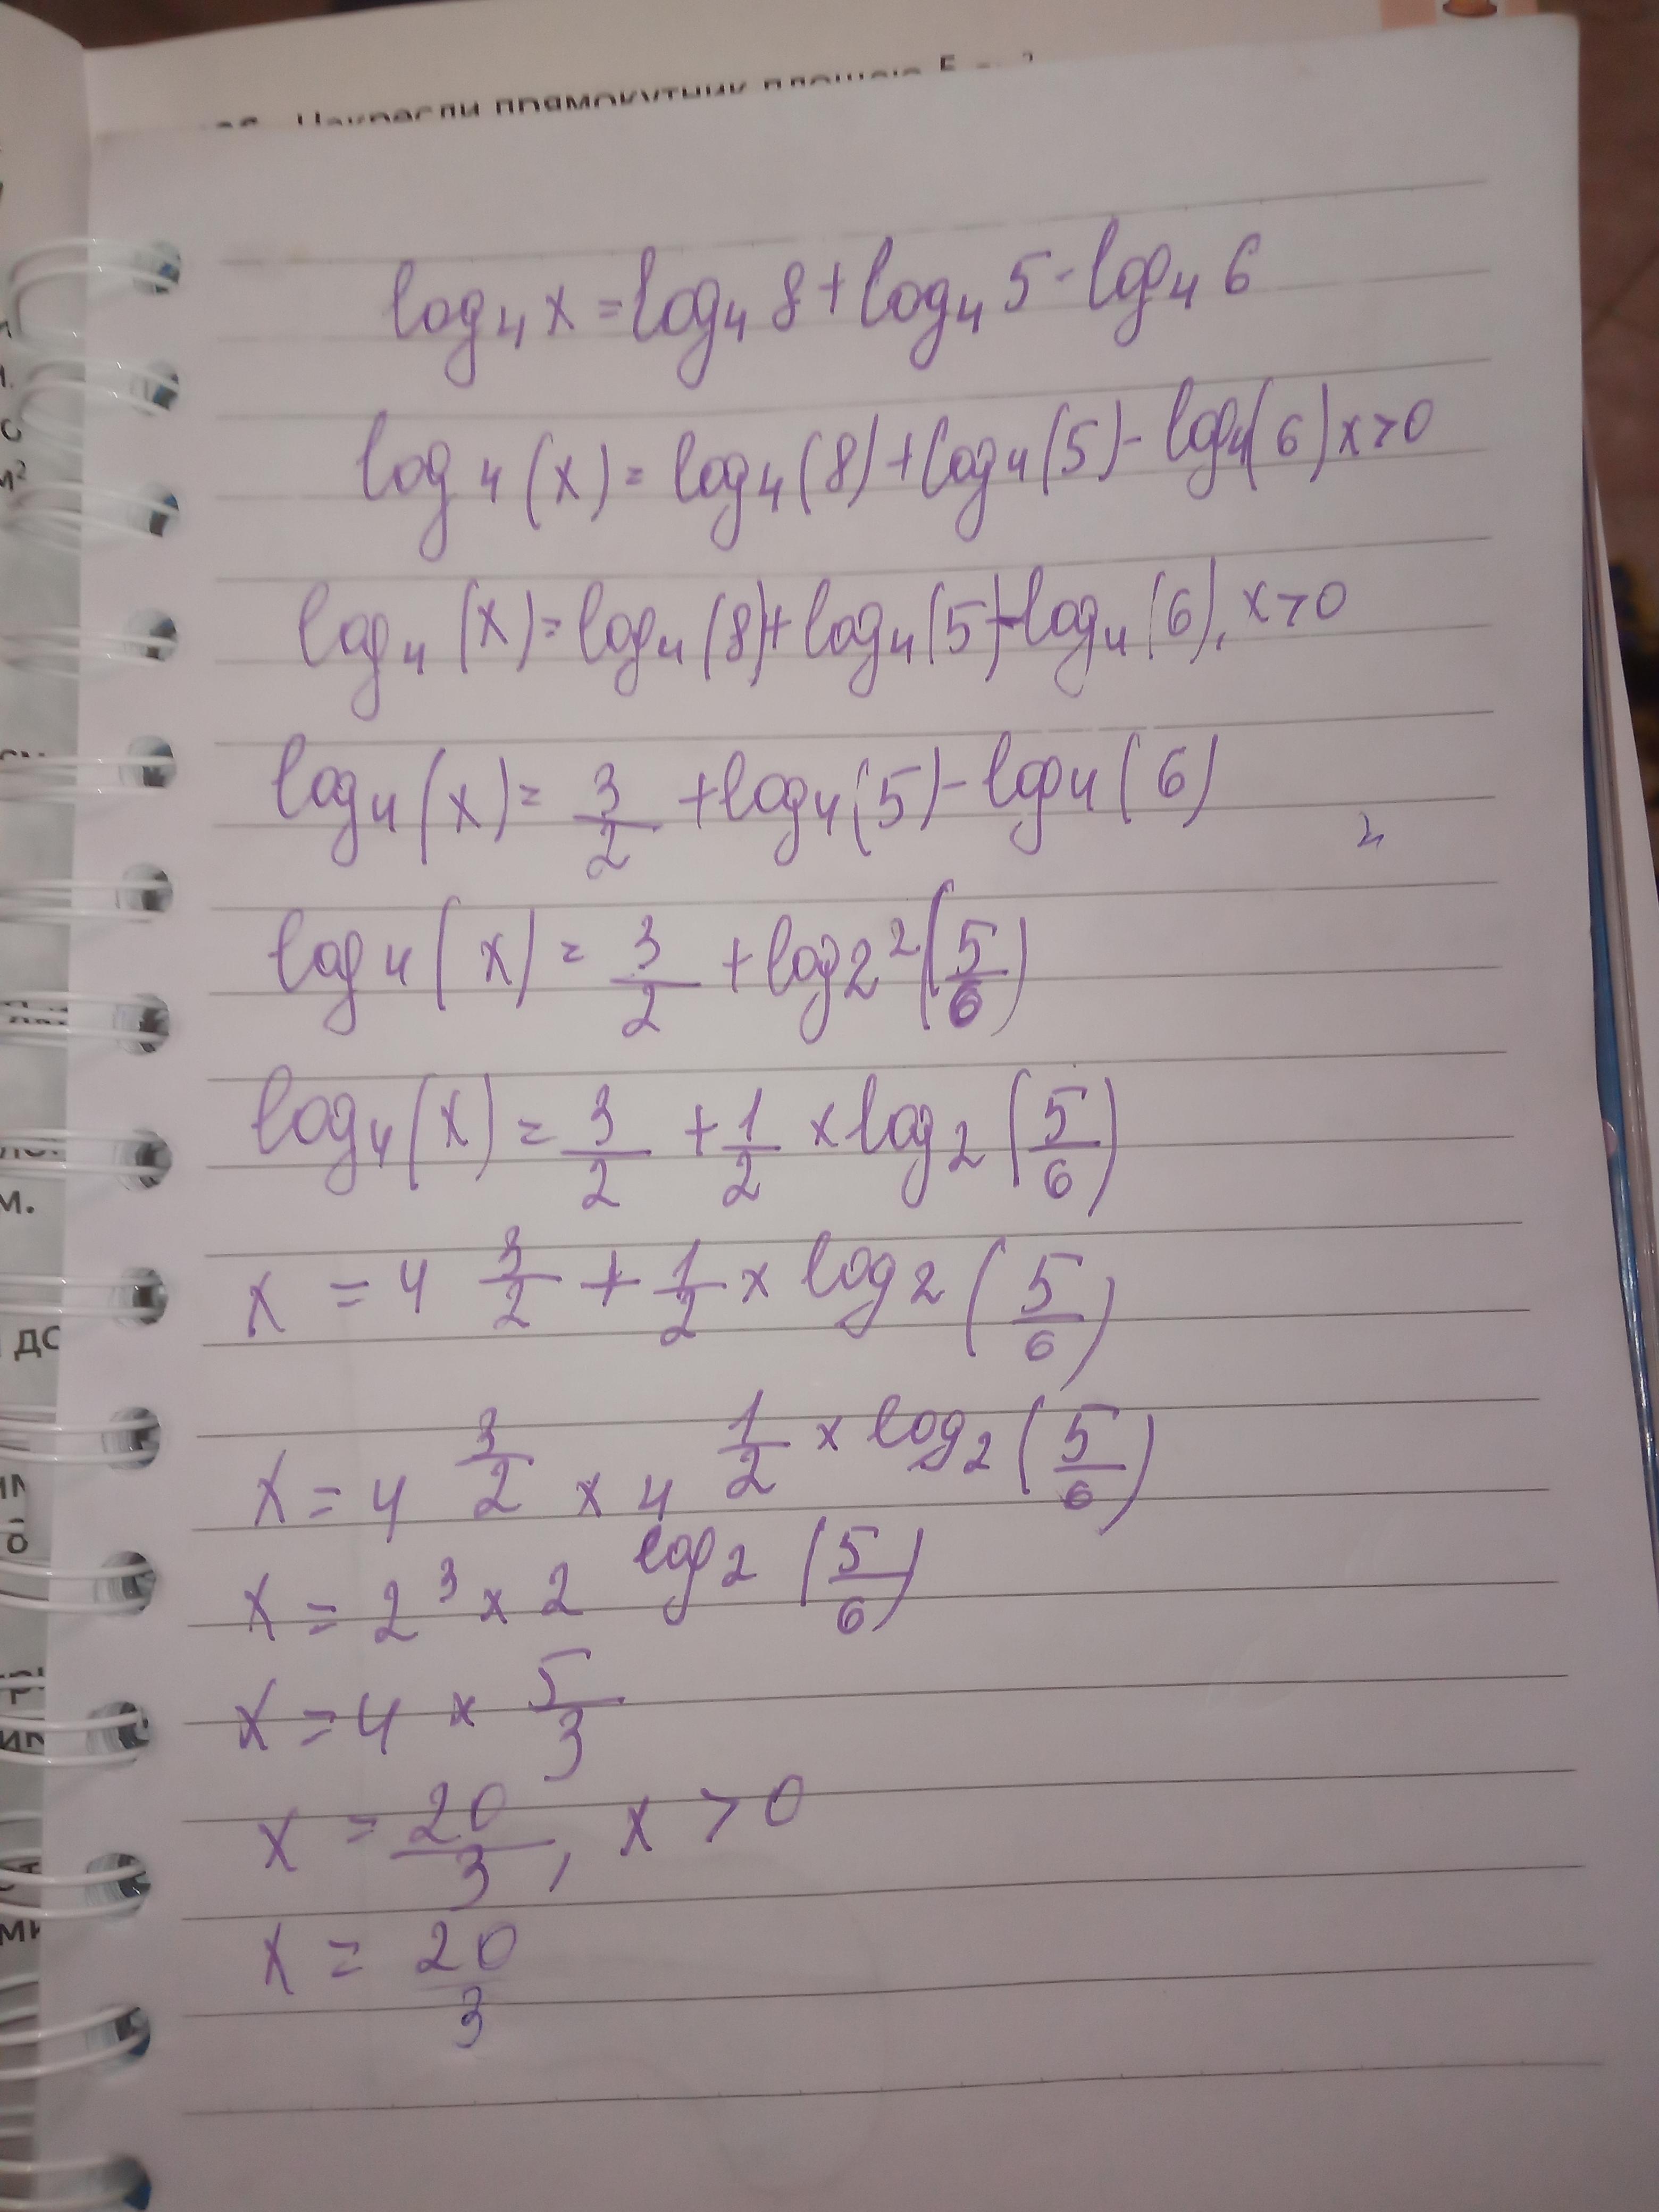 Накресли прямокутник площею 5
log₄ x = log₄ 8 + log₄ 5 - log₄ 6
log₄ (x) = log₄ (8) + log₄ (5) - log₄ (6) x > 0
log₄ (x) = log₄ (8) + log₄ (5) - log₄ (6), x > 0
log₄ (x) = 3/2 + log₄ (5) - log₄ (6)
log₄ (x) = 3/2 + log2² (5/6)
log₄ (x) = 3/2 + 1/2 × log₂ (5/6)
x = 4 ^ 3/2 + 1/2 × log₂ (5/6)
x = 4 ^ 3/2 × 4 ^ 1/2 × log₂ (5/6)
x = 2³ × 2 ^ log₂ (5/6)
x = 4 × 5/3
x = 20/3, x > 0
x = 20/3
м²
м.
до